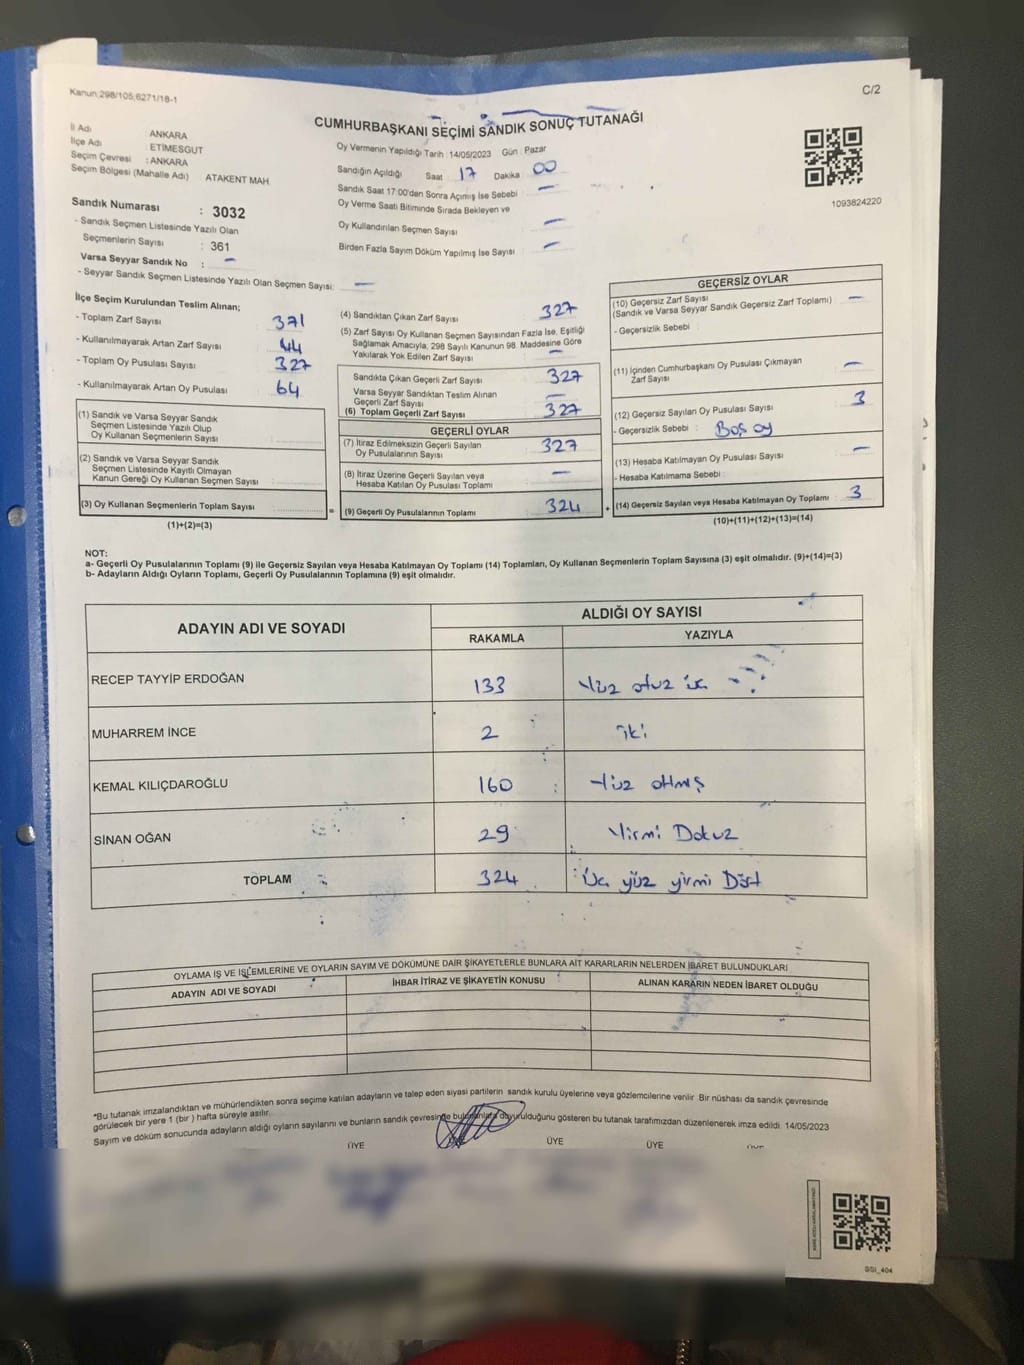 Kanun;298/105,6271/18-1
C/2
CUMHURBAŞKANI SEÇİMİ SANDIK SONUÇ TUTANAĞI
İl Adı ANKARA
İlçe Adı : ETİMESGUT
Seçim Çevresi : ANKARA
Seçim Bölgesi (Mahalle Adı) ATAKENT MAH.
Oy Vermenin Yapıldığı Tarih : 14/05/2023 Gün : Pazar
Sandığın Açıldığı Saat 17 Dakika 00
Sandık Saat 17:00'den Sonra Açılmış İse Sebebi : —
Oy Verme Saati Bitiminde Sırada Bekleyen ve
Oy Kullandırılan Seçmen Sayısı : —
Birden Fazla Sayım Döküm Yapılmış İse Sayısı : —
1093824220
Sandık Numarası : 3032
- Sandık Seçmen Listesinde Yazılı Olan
Seçmenlerin Sayısı : 361
Varsa Seyyar Sandık No : —
- Seyyar Sandık Seçmen Listesinde Yazılı Olan Seçmen Sayısı: —
İlçe Seçim Kurulundan Teslim Alınan;
- Toplam Zarf Sayısı 371
- Kullanılmayarak Artan Zarf Sayısı 44
- Toplam Oy Pusulası Sayısı 327
- Kullanılmayarak Artan Oy Pusulası 64
(1) Sandık ve Varsa Seyyar Sandık
Seçmen Listesinde Yazılı Olup
Oy Kullanan Seçmenlerin Sayısı :
(2) Sandık ve Varsa Seyyar Sandık
Seçmen Listesinde Kayıtlı Olmayan
Kanun Gereği Oy Kullanan Seçmen Sayısı :
(3) Oy Kullanan Seçmenlerin Toplam Sayısı :
(1)+(2)=(3)
(4) Sandıktan Çıkan Zarf Sayısı 327
(5) Zarf Sayısı Oy Kullanan Seçmen Sayısından Fazla İse, Eşitliği
Sağlamak Amacıyla, 298 Sayılı Kanunun 98. Maddesine Göre
Yakılarak Yok Edilen Zarf Sayısı : —
Sandıkta Çıkan Geçerli Zarf Sayısı 327
Varsa Seyyar Sandıktan Teslim Alınan
Geçerli Zarf Sayısı —
(6) Toplam Geçerli Zarf Sayısı 327
GEÇERLİ OYLAR
(7) İtiraz Edilmeksizin Geçerli Sayılan
Oy Pusulalarının Sayısı 327
(8) İtiraz Üzerine Geçerli Sayılan veya
Hesaba Katılan Oy Pusulası Toplamı —
= (9) Geçerli Oy Pusulalarının Toplamı 324
GEÇERSİZ OYLAR
(10) Geçersiz Zarf Sayısı
(Sandık ve Varsa Seyyar Sandık Geçersiz Zarf Toplamı) : —
- Geçersizlik Sebebi :
(11) İçinden Cumhurbaşkanı Oy Pusulası Çıkmayan
Zarf Sayısı : —
(12) Geçersiz Sayılan Oy Pusulası Sayısı 3
- Geçersizlik Sebebi : Boş oy
(13) Hesaba Katılmayan Oy Pusulası Sayısı —
- Hesaba Katılmama Sebebi :
+ (14) Geçersiz Sayılan veya Hesaba Katılmayan Oy Toplamı 3
(10)+(11)+(12)+(13)=(14)
NOT:
a- Geçerli Oy Pusulalarının Toplamı (9) ile Geçersiz Sayılan veya Hesaba Katılmayan Oy Toplamı (14) Toplamları, Oy Kullanan Seçmenlerin Toplam Sayısına (3) eşit olmalıdır. (9)+(14)=(3)
b- Adayların Aldığı Oyların Toplamı, Geçerli Oy Pusulalarının Toplamına (9) eşit olmalıdır.
ADAYIN ADI VE SOYADI
ALDIĞI OY SAYISI
RAKAMLA YAZIYLA
RECEP TAYYİP ERDOĞAN 133 Yüz otuz üç
MUHARREM İNCE 2 iki
KEMAL KILIÇDAROĞLU 160 Yüz altmış
SİNAN OĞAN 29 Yirmi Dokuz
TOPLAM 324 Üç yüz yirmi Dört
OYLAMA İŞ VE İŞLEMLERİNE VE OYLARIN SAYIM VE DÖKÜMÜNE DAİR ŞİKAYETLERLE BUNLARA AİT KARARLARIN NELERDEN İBARET BULUNDUKLARI
ADAYIN ADI VE SOYADI İHBAR İTİRAZ VE ŞİKAYETİN KONUSU ALINAN KARARIN NEDEN İBARET OLDUĞU
*Bu tutanak imzalandıktan ve mühürlendikten sonra seçime katılan adayların ve talep eden siyasi partilerin sandık kurulu üyelerine veya gözlemcilerine verilir. Bir nüshası da sandık çevresinde
görülecek bir yere 1 (bir ) hafta süreyle asılır.
Sayım ve döküm sonucunda adayların aldığı oyların sayılarını ve bunların sandık çevresinde bulunanlara duyurulduğunu gösteren bu tutanak tarafımızdan düzenlenerek imza edildi. 14/05/2023
ÜYE ÜYE ÜYE
SSI_404